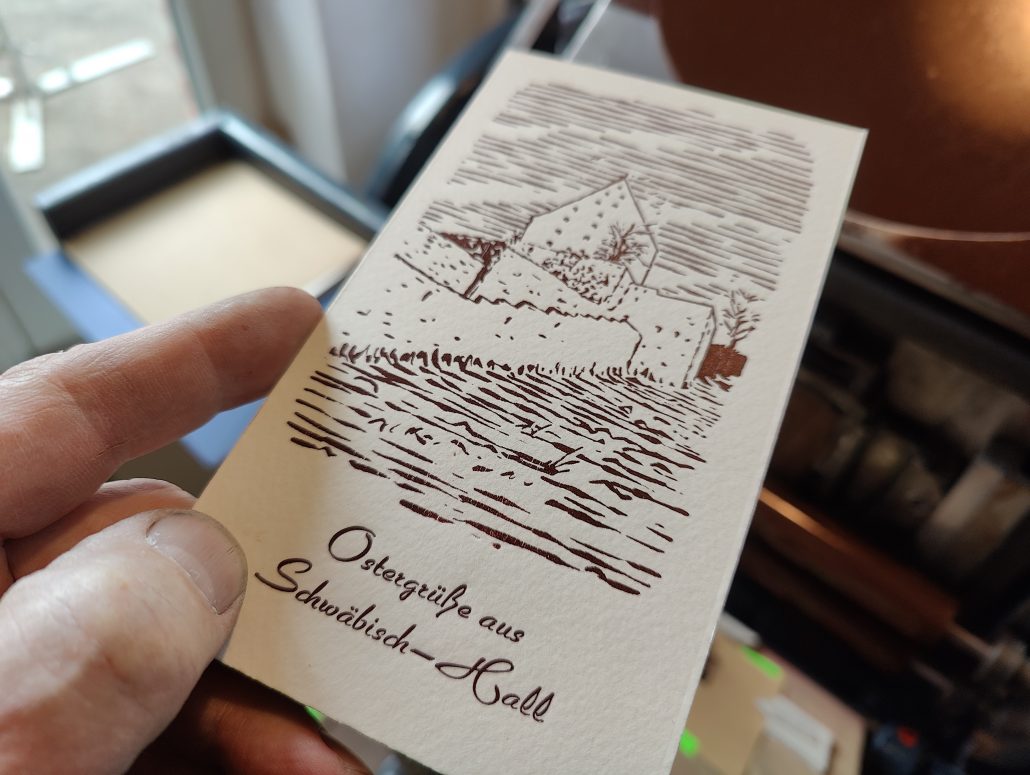 Ostergrüße aus
Schwäbisch-Hall